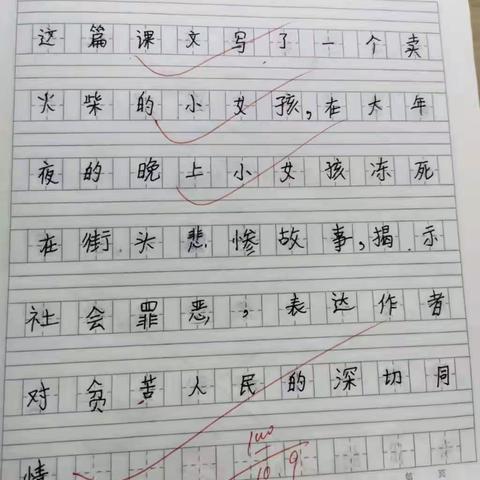 这篇课文写了一个卖
火柴的小女孩,在大年
夜的晚上小女孩冻死
在街头悲惨故事,揭示
社会罪恶,表达作者
对贫苦人民的深切同
情
100
10.9